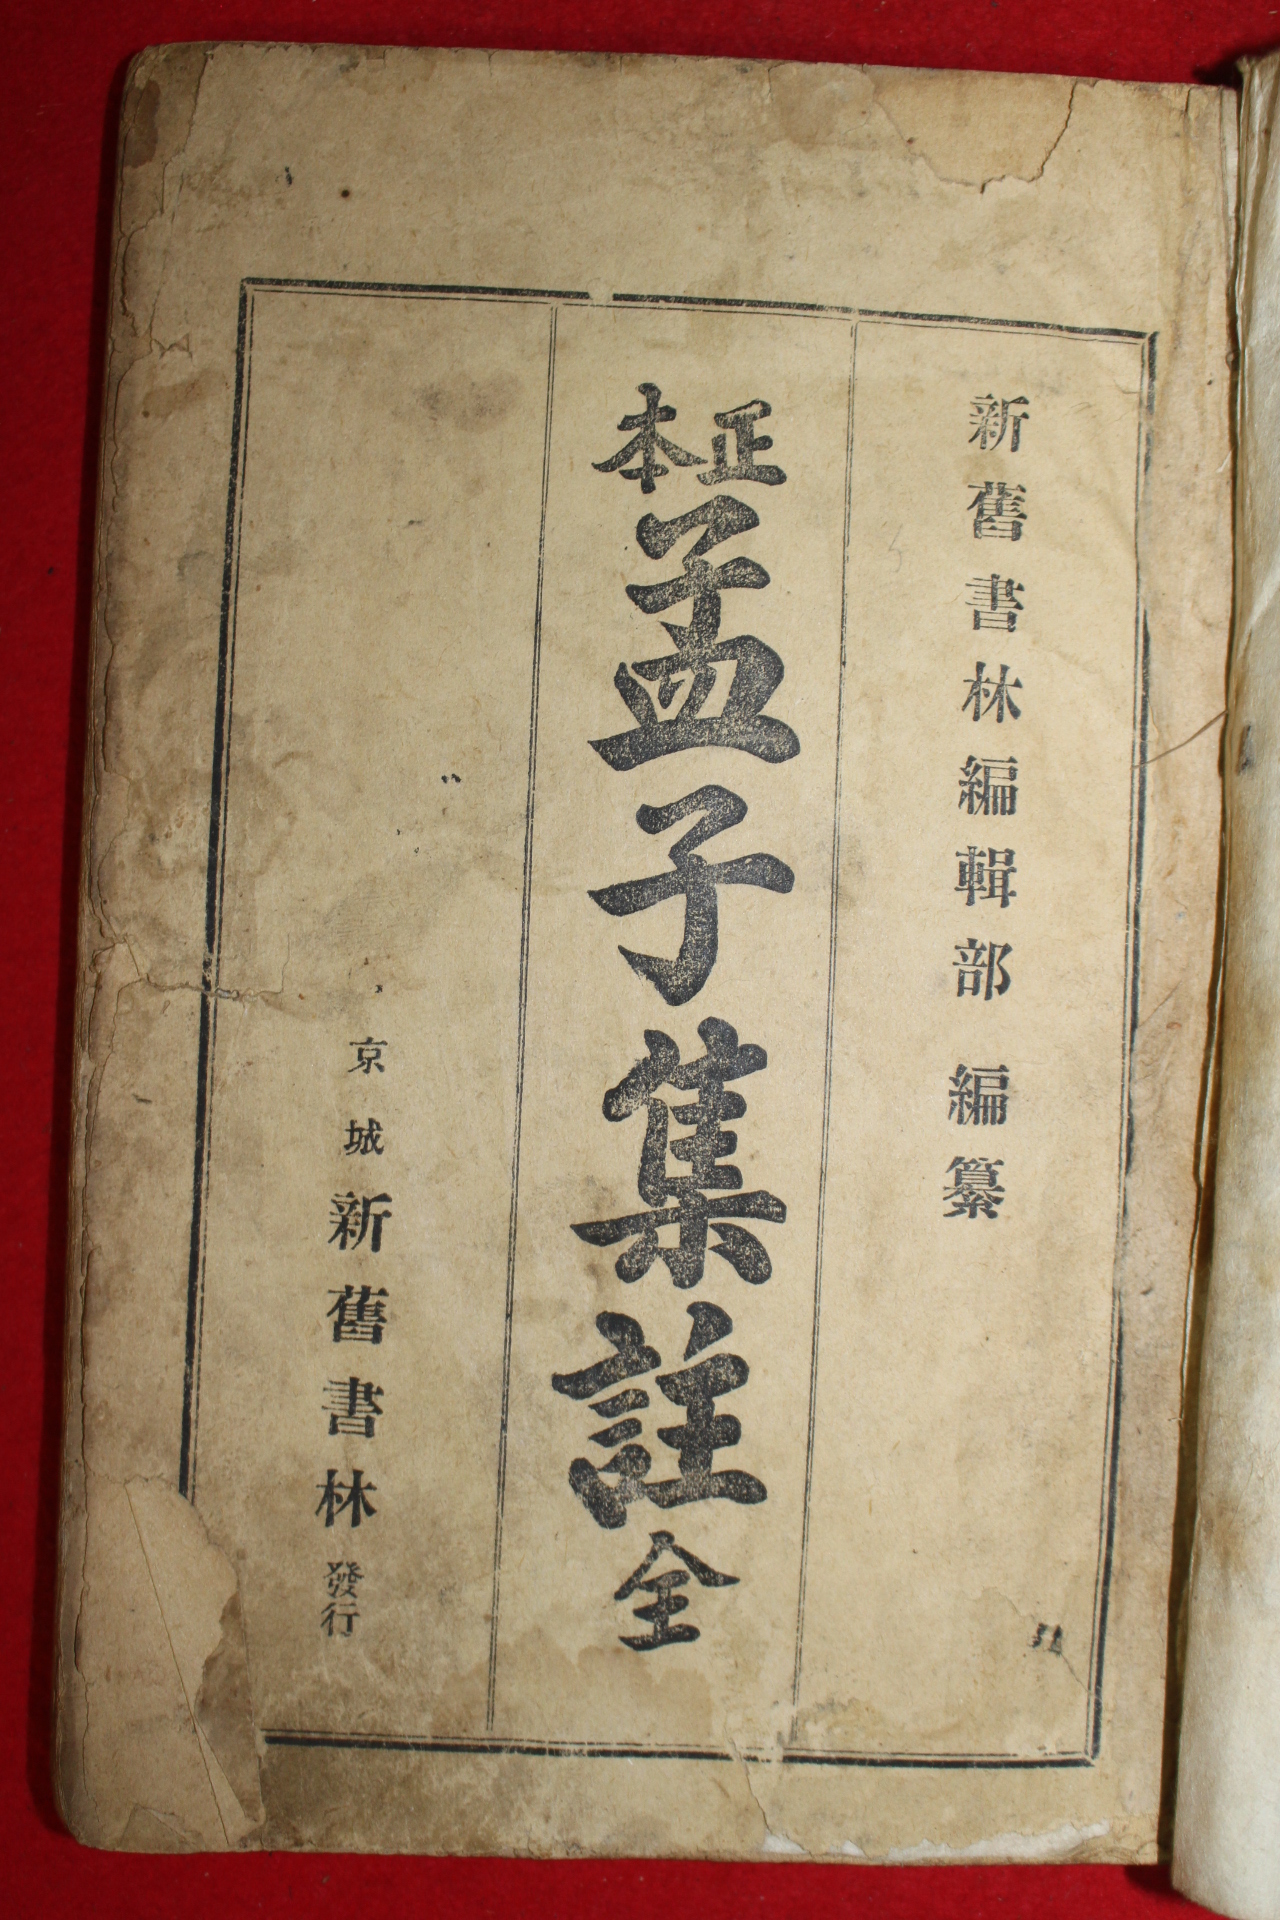 新舊書林編輯部 編纂
正本 孟子集註 全
京城 新舊書林 發行